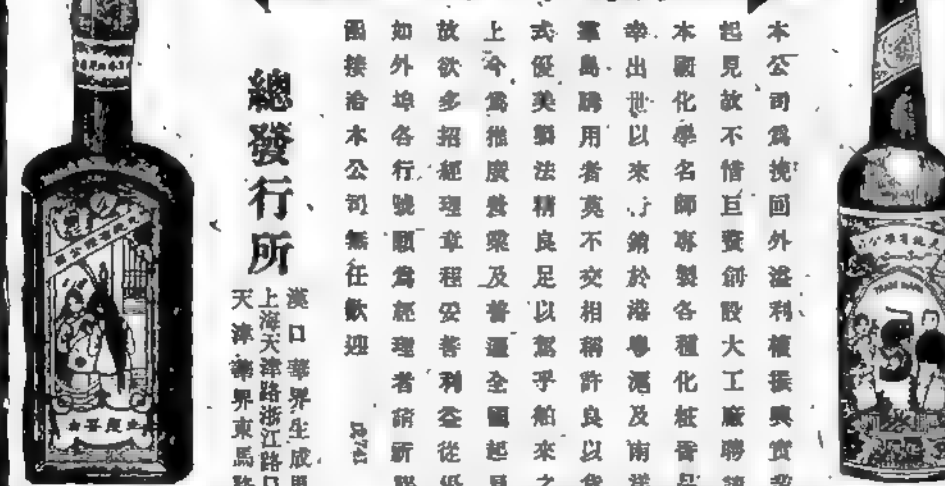 本公司為挽回外溢利權振興實業
起見故不惜巨資創設大工廠聘請
本國化學名師專製各種化粧香品
出世以來行銷於港粵滬及南洋
羣島購用者莫不交相稱許良以貨
式優美製法精良足以駕乎舶來之
上今為推廣營業及普遍全國起見
故欲多招經理章程妥善利益從
如外埠各行號願為經理者請
接洽本公司無任歡迎
總發行所
漢口華界生成里
上海天津路浙江路口
天津 界東馬路